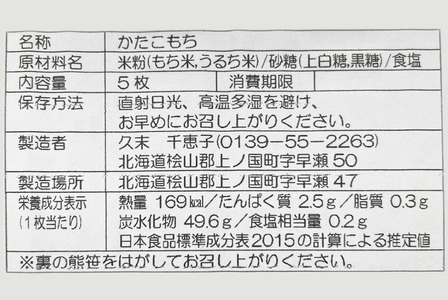 名称 かたこもち
原材料名 米粉(もち米,うるち米)/砂糖(上白糖,黒糖)/食塩
内容量 5枚 消費期限
保存方法 直射日光、高温多湿を避け、
お早めにお召し上がりください。
製造者 久末 千恵子(0139-55-2263)
北海道桧山郡上ノ国町字早瀬50
製造場所 北海道桧山郡上ノ国町字早瀬47
栄養成分表示 熱量 169㎉/たんぱく質 2.5g/脂質 0.3g
(1枚当たり) 炭水化物 49.6g/食塩相当量 0.2g
日本食品標準成分表2015の計算による推定値
※裏の熊笹をはがしてお召し上がりください。